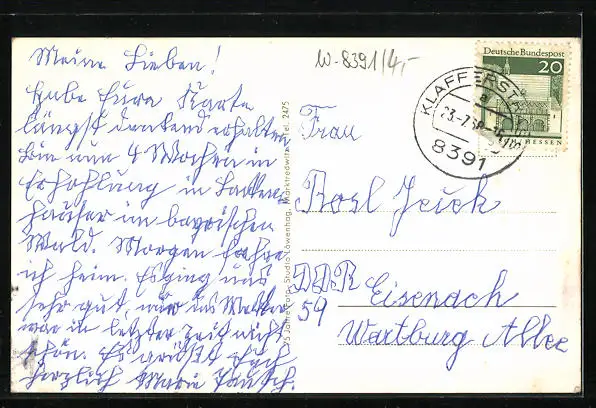 Meine Lieben!
Habe Eure Karte
längst dankend erhalten
bin nun 4 Wochen in
Erhohlung in
häuser im bayrischen
Wald. Morgen fahre
ich heim. Es ging uns
sehr gut, nur das Wetter
war in letzter Zeit nicht
schön. Es grüßt Euch
herzlich Marie Pausch.
W-8391/4,-
Frau
Rosl Jeuck
DDR
59 Eisenach
Wartburg Allee
Deutsche Bundespost
20
HESSEN
KLAFFERSTRASS
a
8391
75 Jahre Foto-Studio Löwenhag, Marktredwitz, Tel. 2475